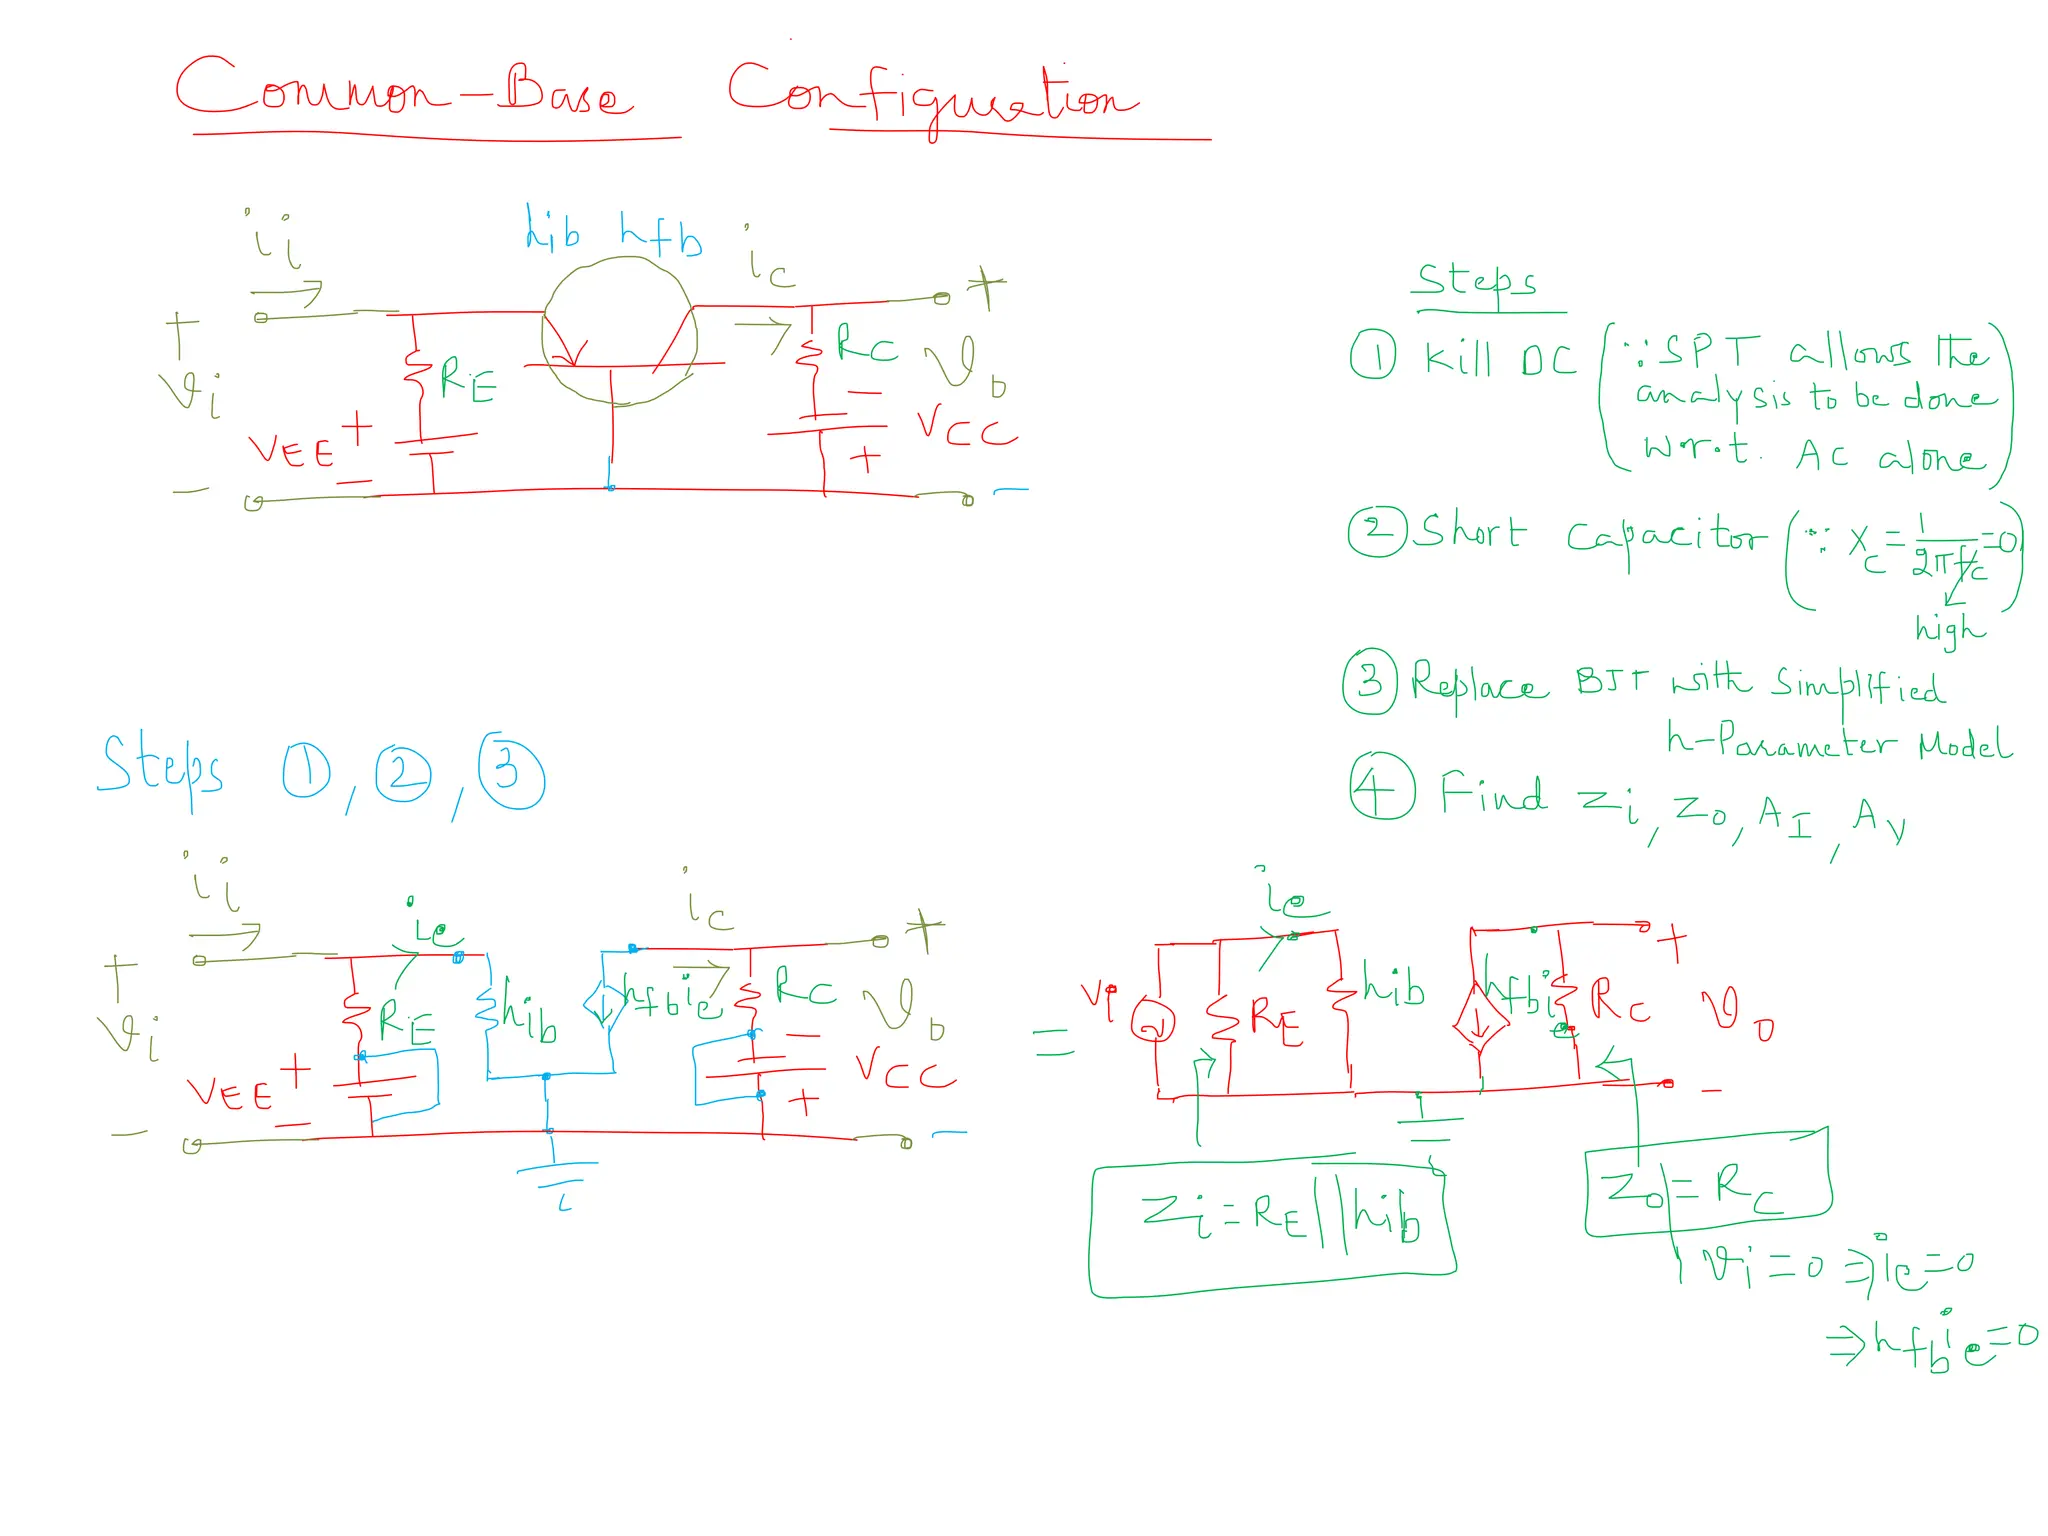 Common-Base Configuration
ii
hib hfb
ic
+
vi
-
RE
VEE + -
RC
- VCC +
+
vo
-
Steps
① Kill DC (∵ SPT allows the
analysis to be done
w.r.t. AC alone)
② Short Capacitor (∵ Xc = 1/2πfc = 0)
high
③ Replace BJT with simplified
h-Parameter Model
④ Find Zi, Zo, AI, AV
Steps ①, ②, ③
ii
ie
ic
+
vi
-
RE
VEE + -
hib
hfbie
RC
- VCC +
+
vo
-
=
ie
vi
RE
hib
hfbie
RC
+
vo
-
Zi = RE || hib
Zo = RC
vi = 0 ⇒ ie = 0
⇒ hfbie = 0